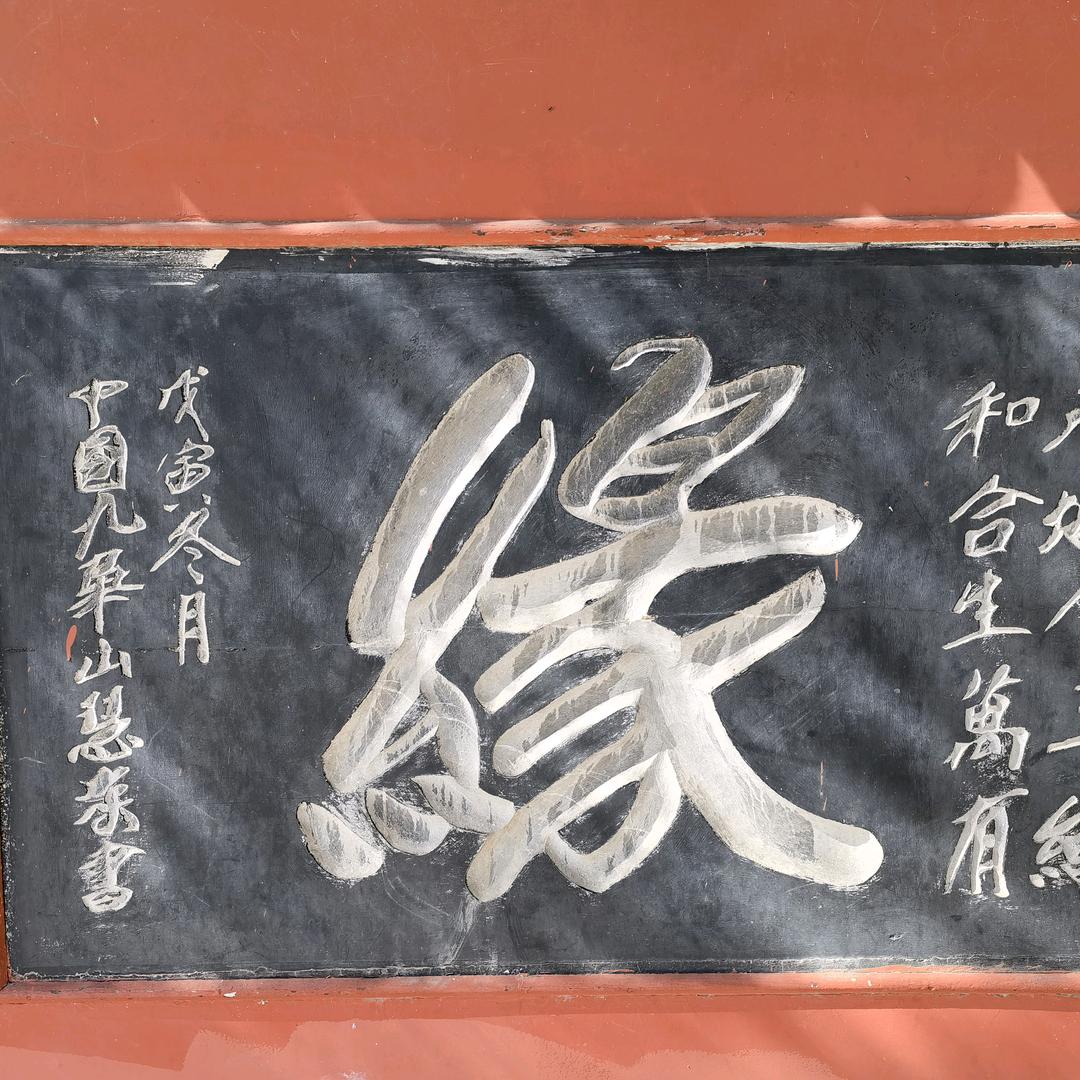 和合生萬有
緣
戊寅冬月
中國九華山慧書